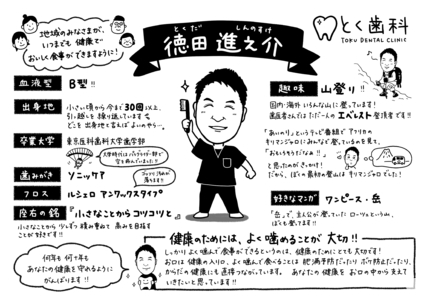 地域のみなさまが、
いつまでも 健康で
おいしく食事ができますように!
とくだ しんのすけ
徳田 進之介
とく歯科
TOKU DENTAL CLINIC
血液型 B型!!
出身地 小さい頃から今まで30回以上、
引っ越しを繰り返しています。
どこを出身地と言えばよいのやら…。
卒業大学 東京医科歯科大学歯学部
大学時代はパラグライダー部で
空を飛んでいました!!
歯みがき ソニッケア
フロス ルシェロ アンワックスタイプ
座右の銘 『小さなことからコツコツと』
小さなことから少しずつ積み重ねて 高みを目指す
ことが好きです!!
何年も 何十年も
あなたの健康を守れるように
がんばります!!
趣味 山登り!!
国内・海外 いろんな山に登っています!
歯医者さんではただ一人のエベレスト登頂者です!!
「あいのり」というテレビ番組で アフリカの
キリマンジャロにみんなで登っているのを見て、
「おもしろそうだなぁ!!」
と思ったのがきっかけ!
だから、ぼくの最初の登山はキリマンジャロでした!
好きなマンガ ワンピース・岳
「岳」で、主人公が登っていた ローツェという山、
ぼくも登れます!!
健康のためには、よく噛めることが 大切!!
しっかり よく噛んで食事ができるというのは、健康のためにとても大切です!
お口は 健康の入り口。よく噛んで食べることは 肥満予防だったり ボケ防止だったり、
からだの健康にも直接つながっています。 あなたの 健康を お口の中から支えて
いきたいと思っています!!